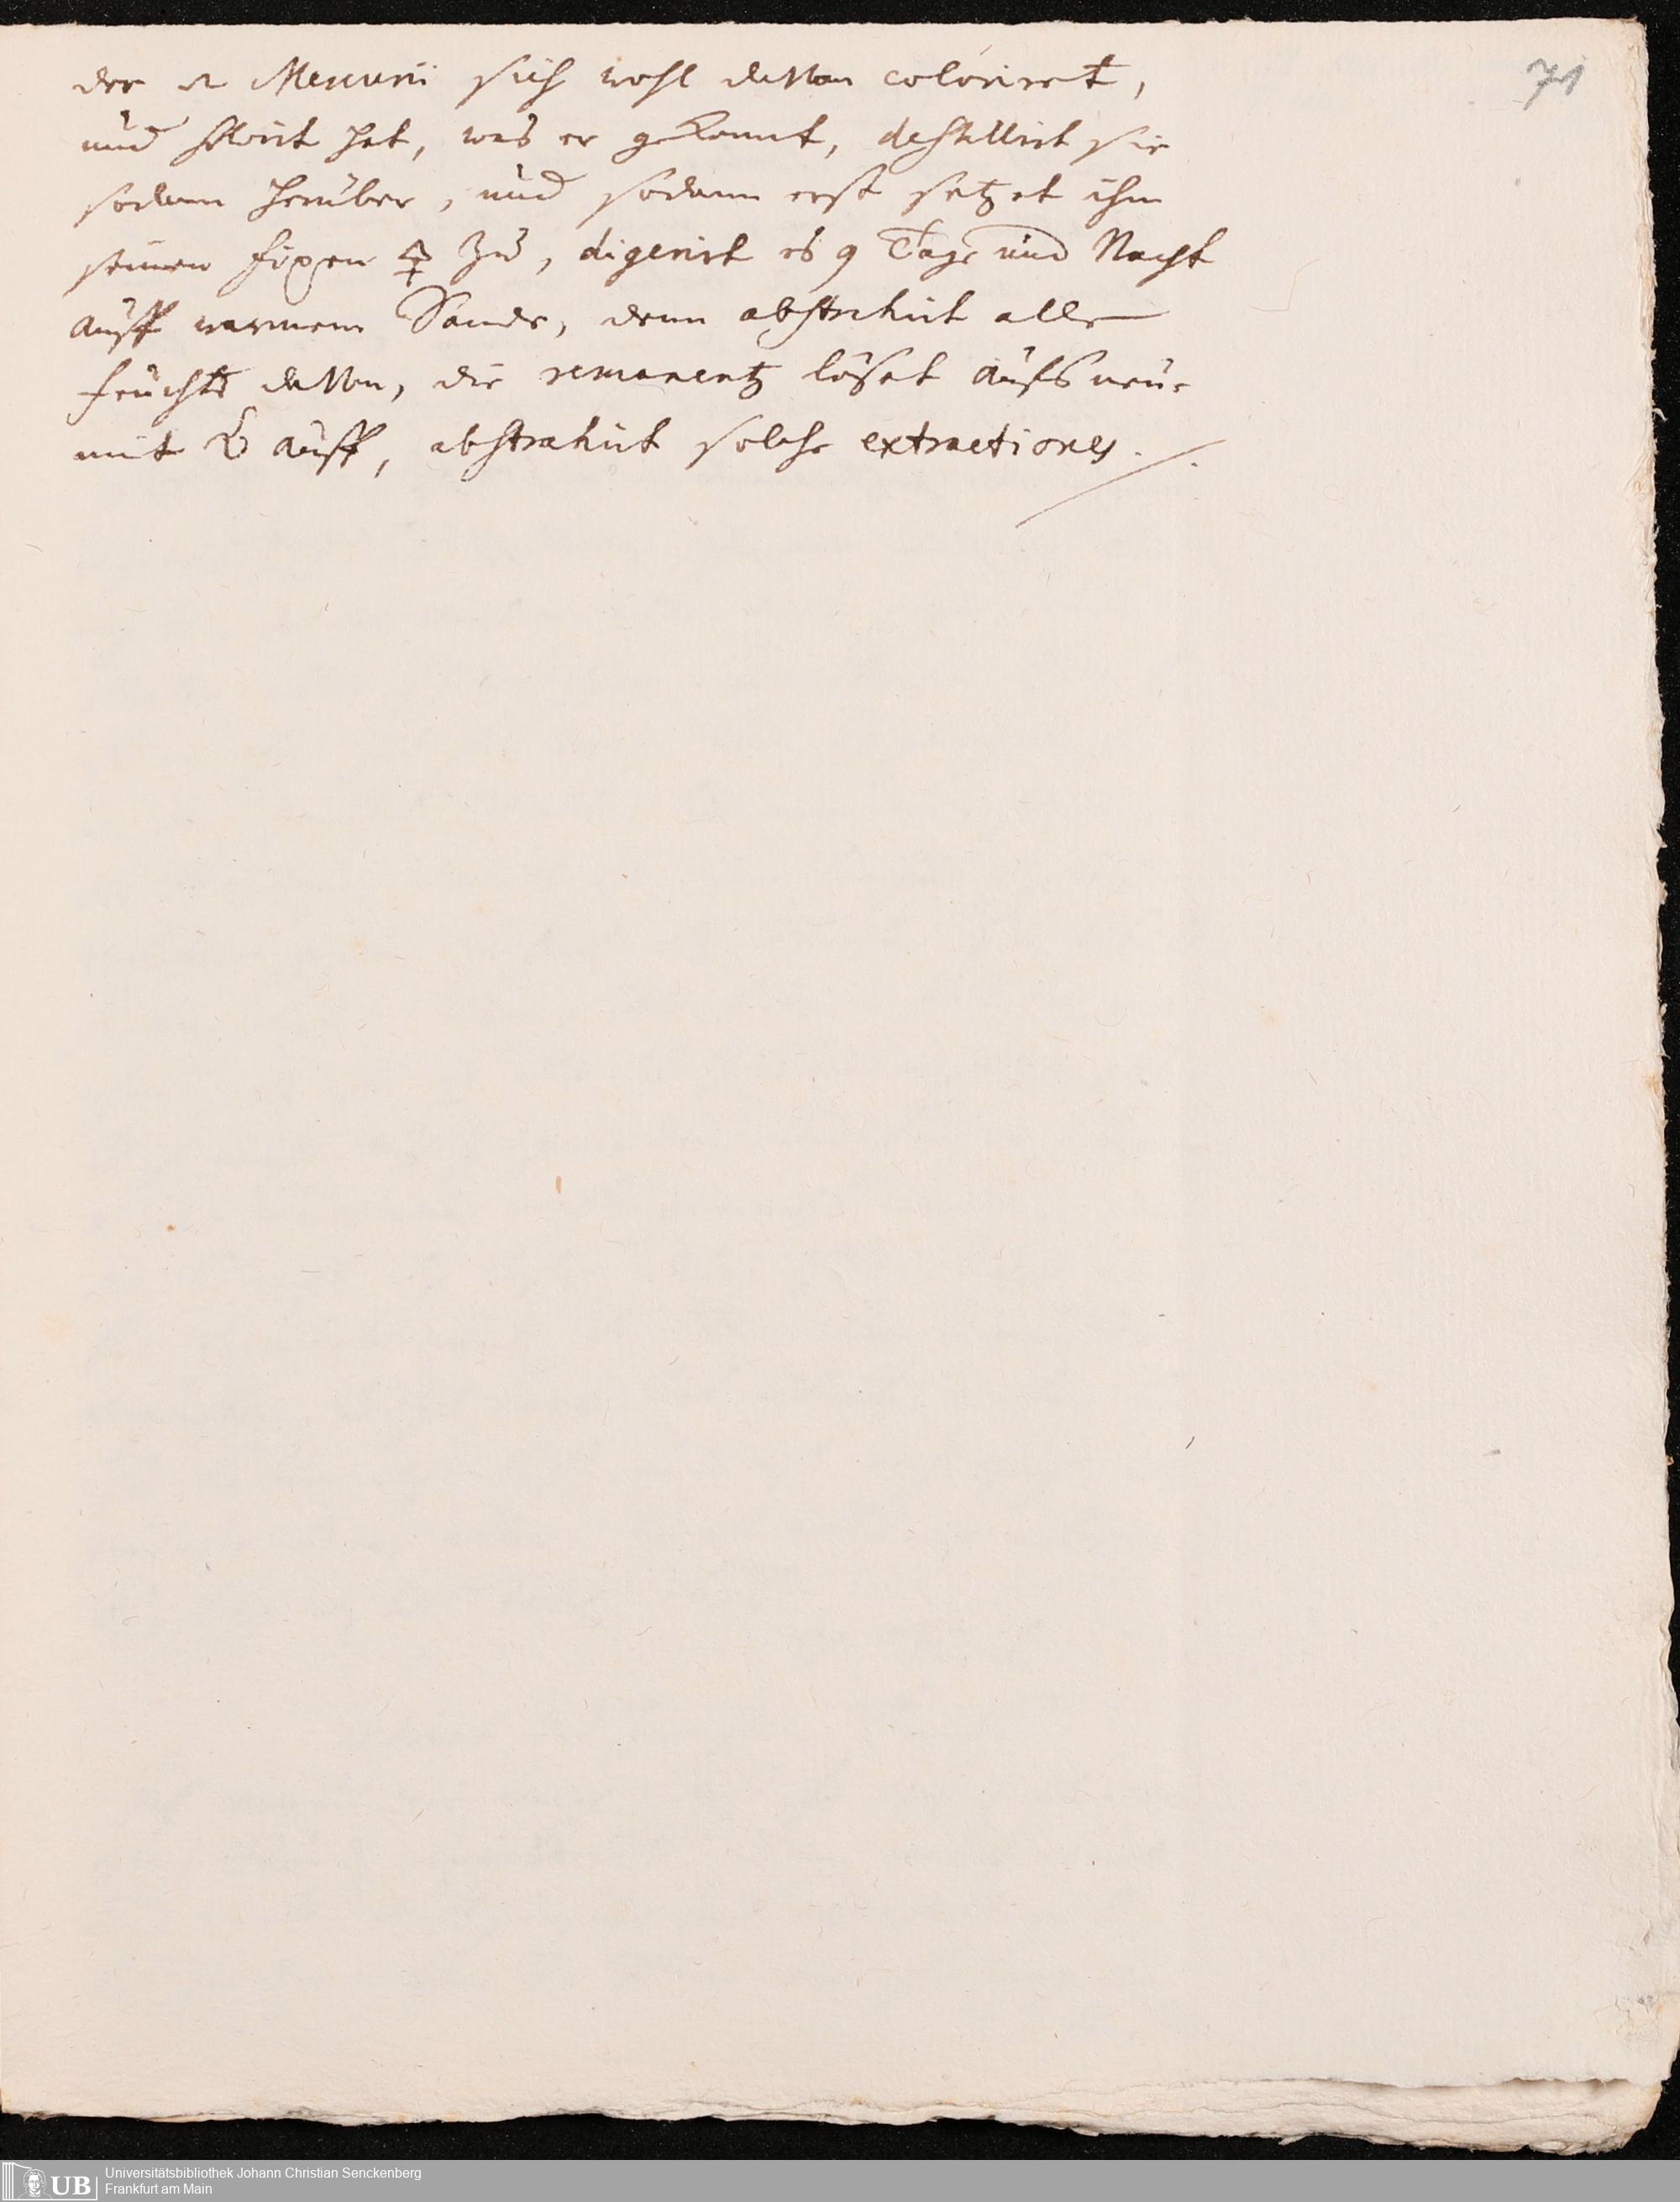 71
der Mercurii sich wohl davon coloriret,
und solvirt hat, was er gekonnt, destillirt sie
sodann herüber, und sodann erst setzet ihm
seinen fixen 🜍 zu, digerirt es 9 Tage und Nacht
auff warmem Sande, denn abstrahirt alle
feuchte davon, die remanentz löset aufs neue
mit auff, abstrahirt solche extractiones ./.
UB
Universitätsbibliothek Johann Christian Senckenberg
Frankfurt am Main